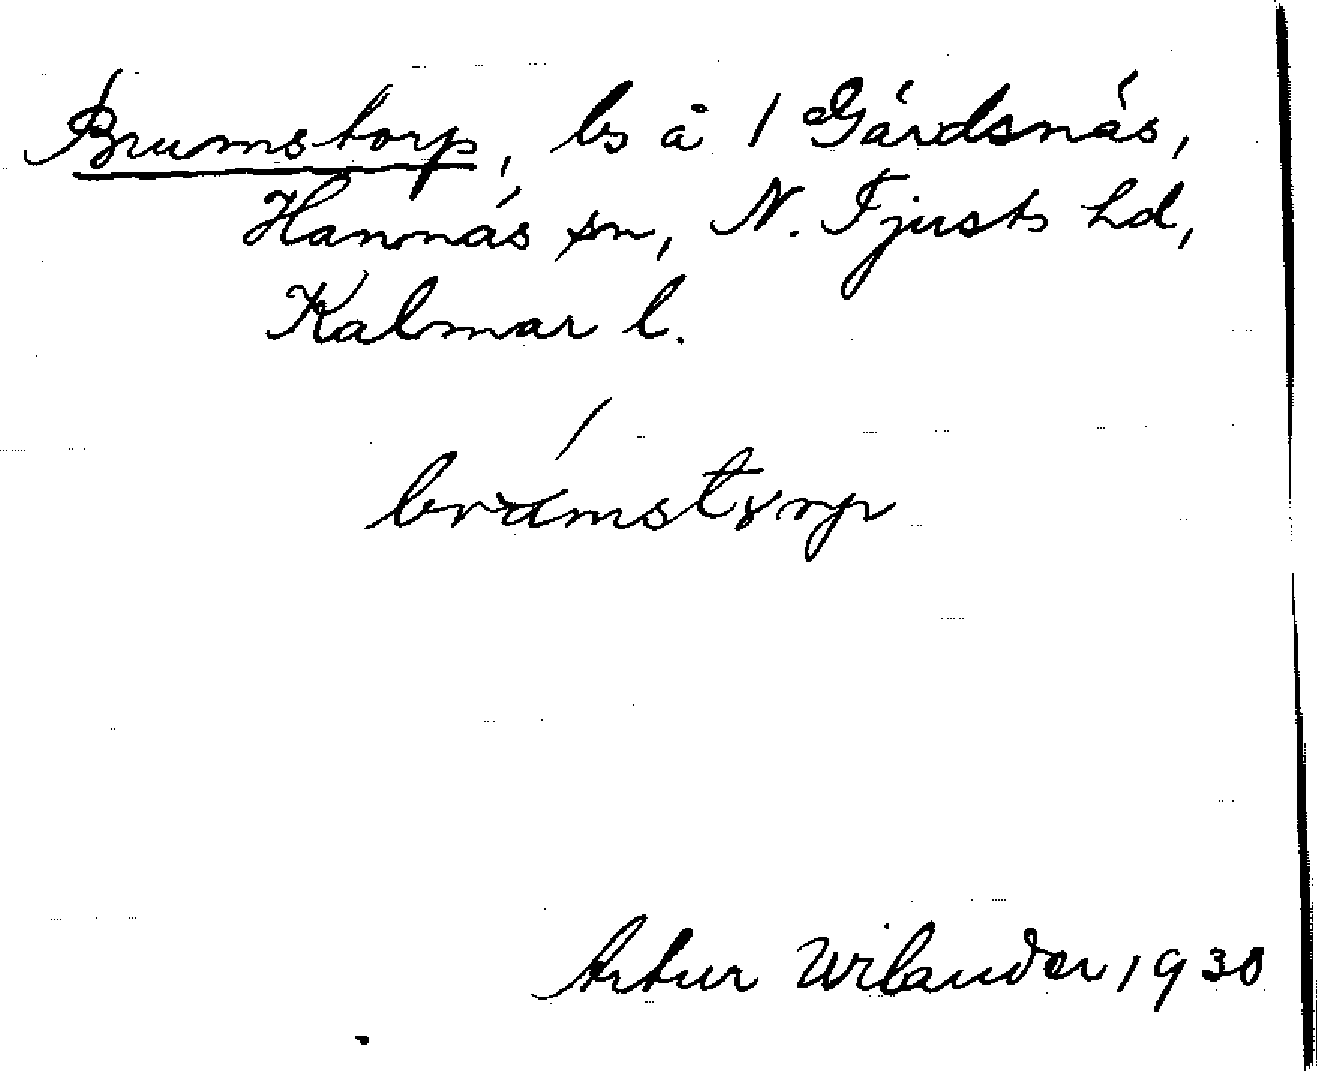 Brumstorp, ls å 1 Gårdsnäs,
Hannäs sn, N. Tjusts hd,
Kalmar l.
Artur Wilander 1930